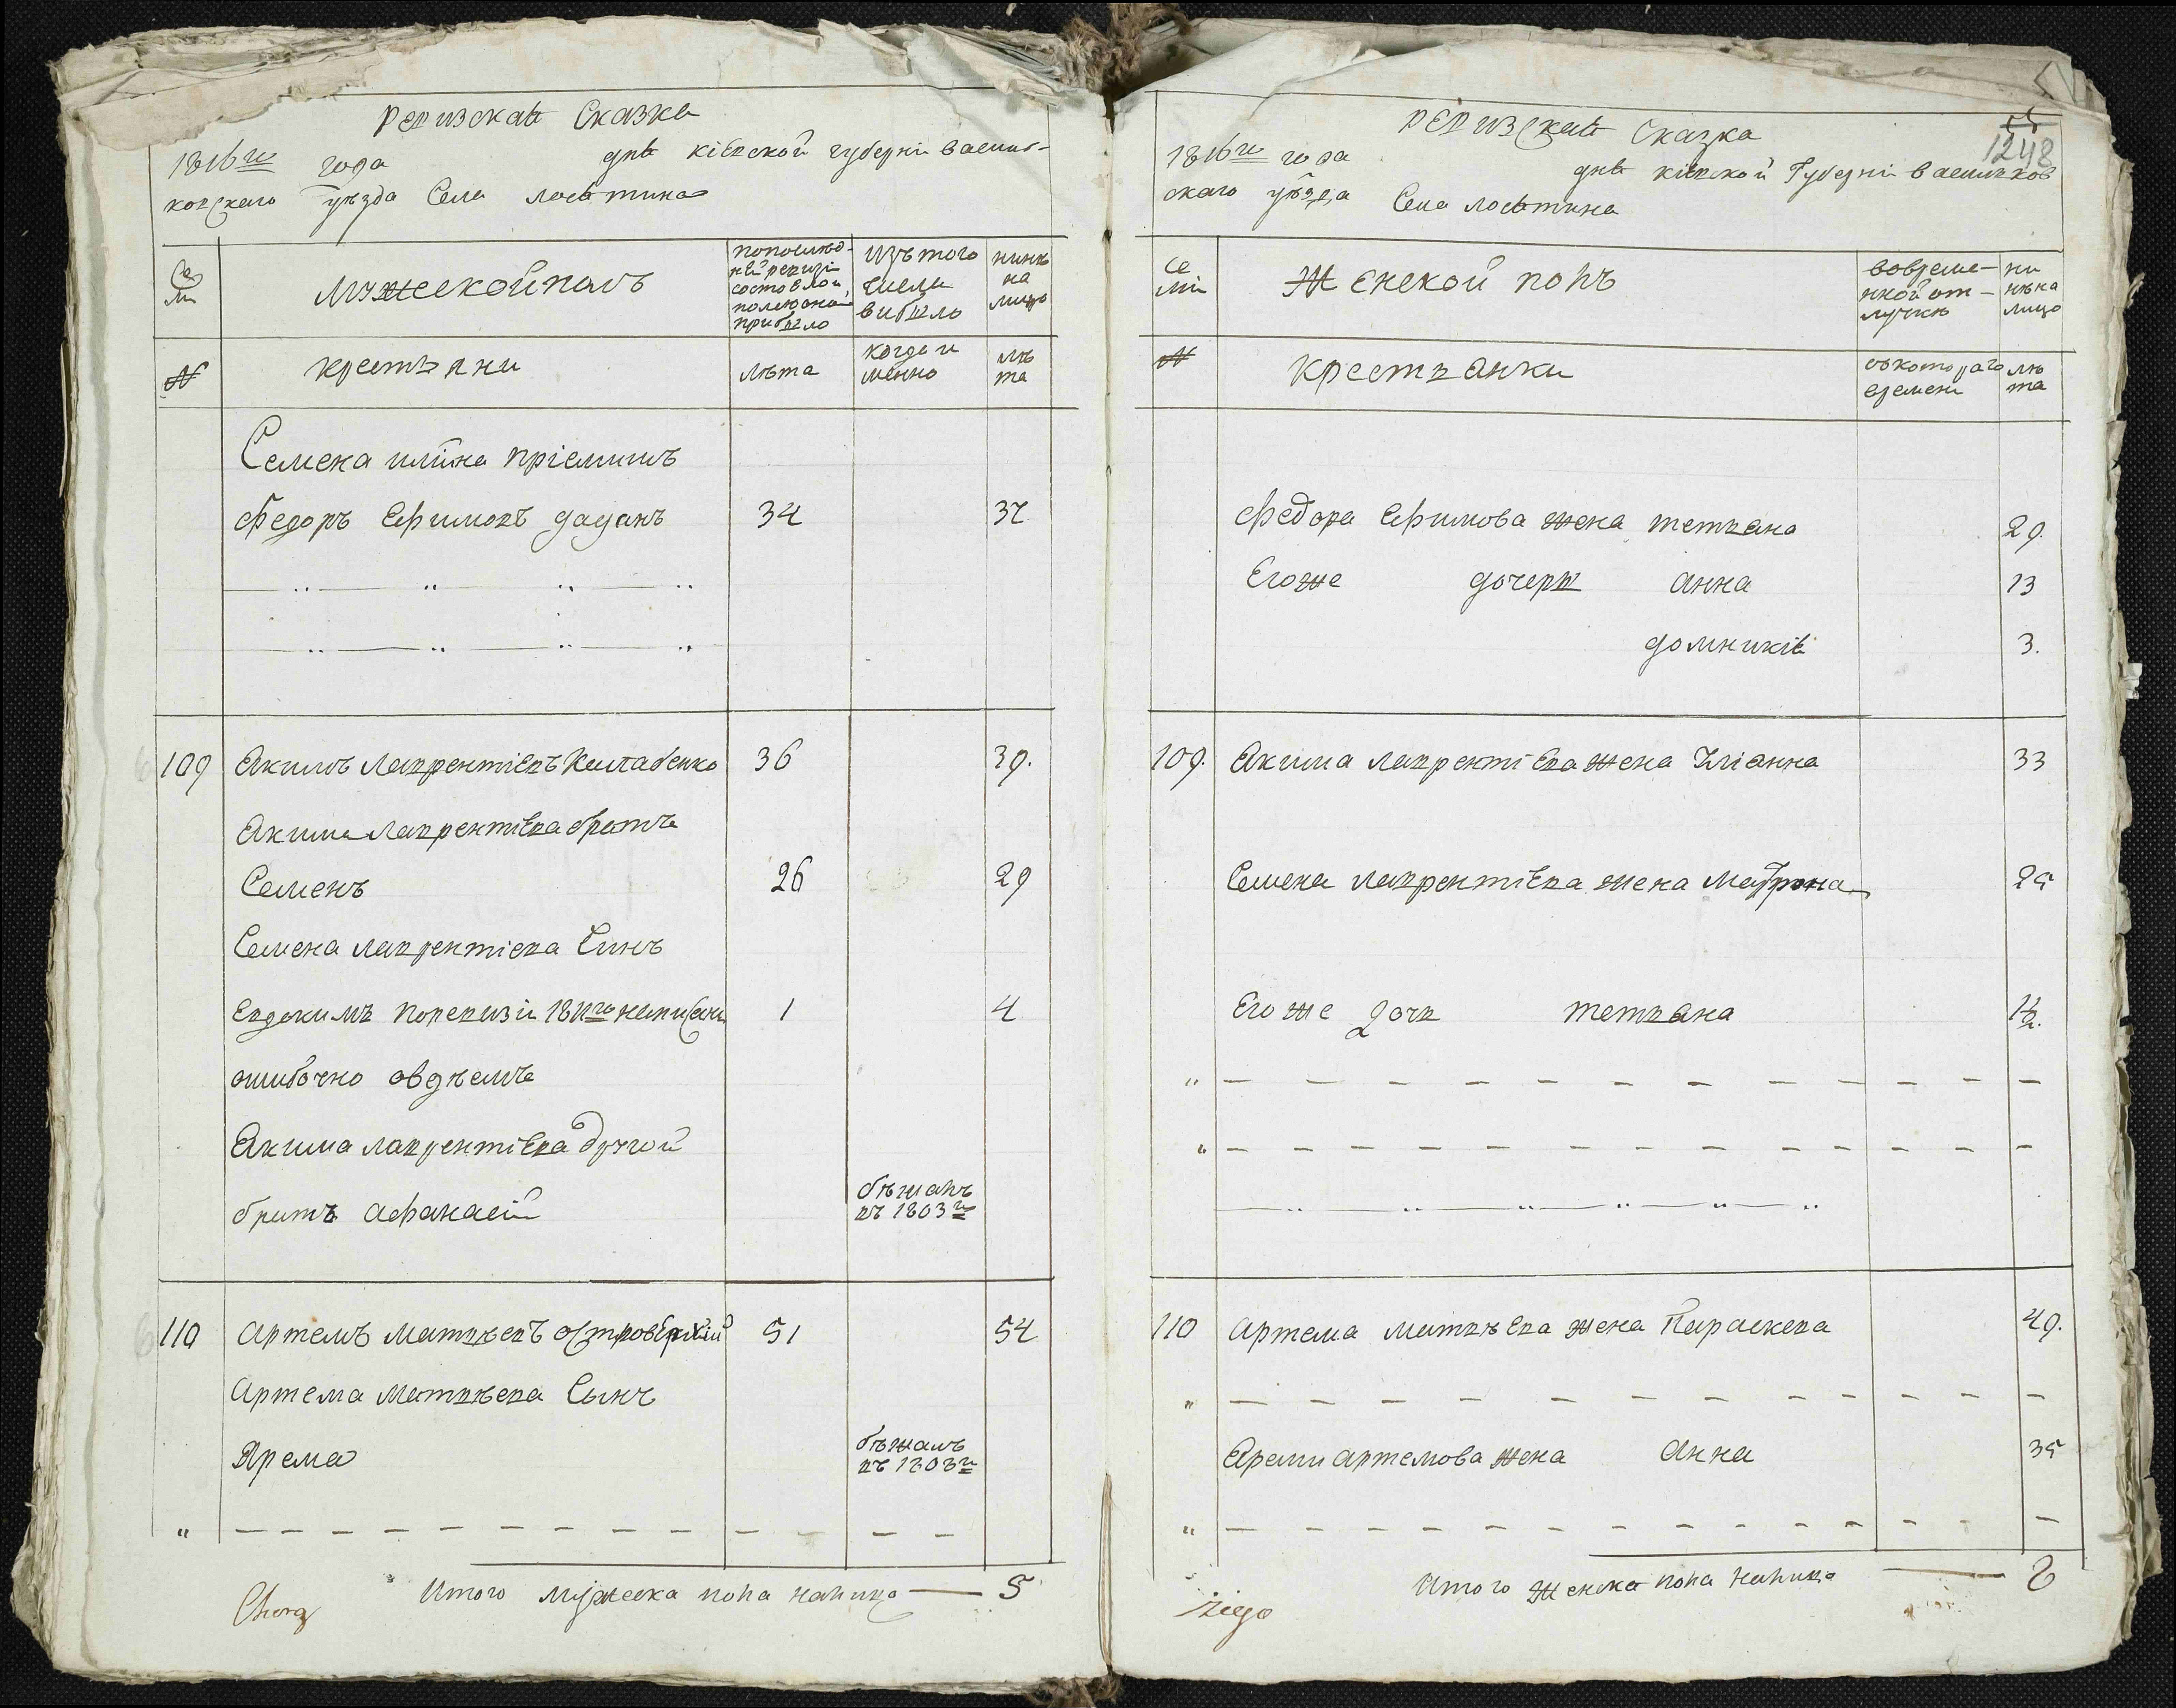 Ревизская Сказка
1816го года дня кіевской губерніи Васил-
ковскаго уѣзда Села лосятина
Се
ми
Мужескойполъ
попослѣд-
ней ревизіи
состояло и
послѣ оной
прибыло
Изътого
числа
выбыло
нинѣ
на
лицо
№
крестьяни
лѣта
когда и
менно
лѣ
та
Семена иліина пріемишъ
Федоръ Ефимовъ даданъ 34 37
109 Акимъ лаврентіевъ 36 39.
Акима лаврентіева братъ
Семенъ 26 29
Семена лаврентіева Синъ
Евдокимъ поревизіи 1811го написанъ 1 4
ошибочно овдѣемъ
Акима лаврентіева другой
братъ афанасій бѣжалъ
въ 1803го
110 артемъ матвѣевъ островерхій 51 54
артема матвѣева Сынъ
Ярема бѣжалъ
въ 1808го
Итого мужеска пола налицо — 5
55
1248
Ревизская Сказка
1816го года дня кіевской Губерніи Васильков
скаго уѣзда Села лосятина
Се
мі
Женской полъ
вовреме-
нной от-
лучкѣ
ни
нѣ на
лицо
№
крестьянки
съкотораго
времени
лѣ
та
Федора Ефимова жена тетьана 29.
Егоже дочерь анна 13
домникія 3.
109. Акима лаврентіева жена Уліанна 33
Семена лаврентіева жена Матрона 25
Егоже дочь тетьана
110 артема матвѣева жена Параскева 49.
Яреми артемова жена анна 35
Итого женска пола налицо — 8